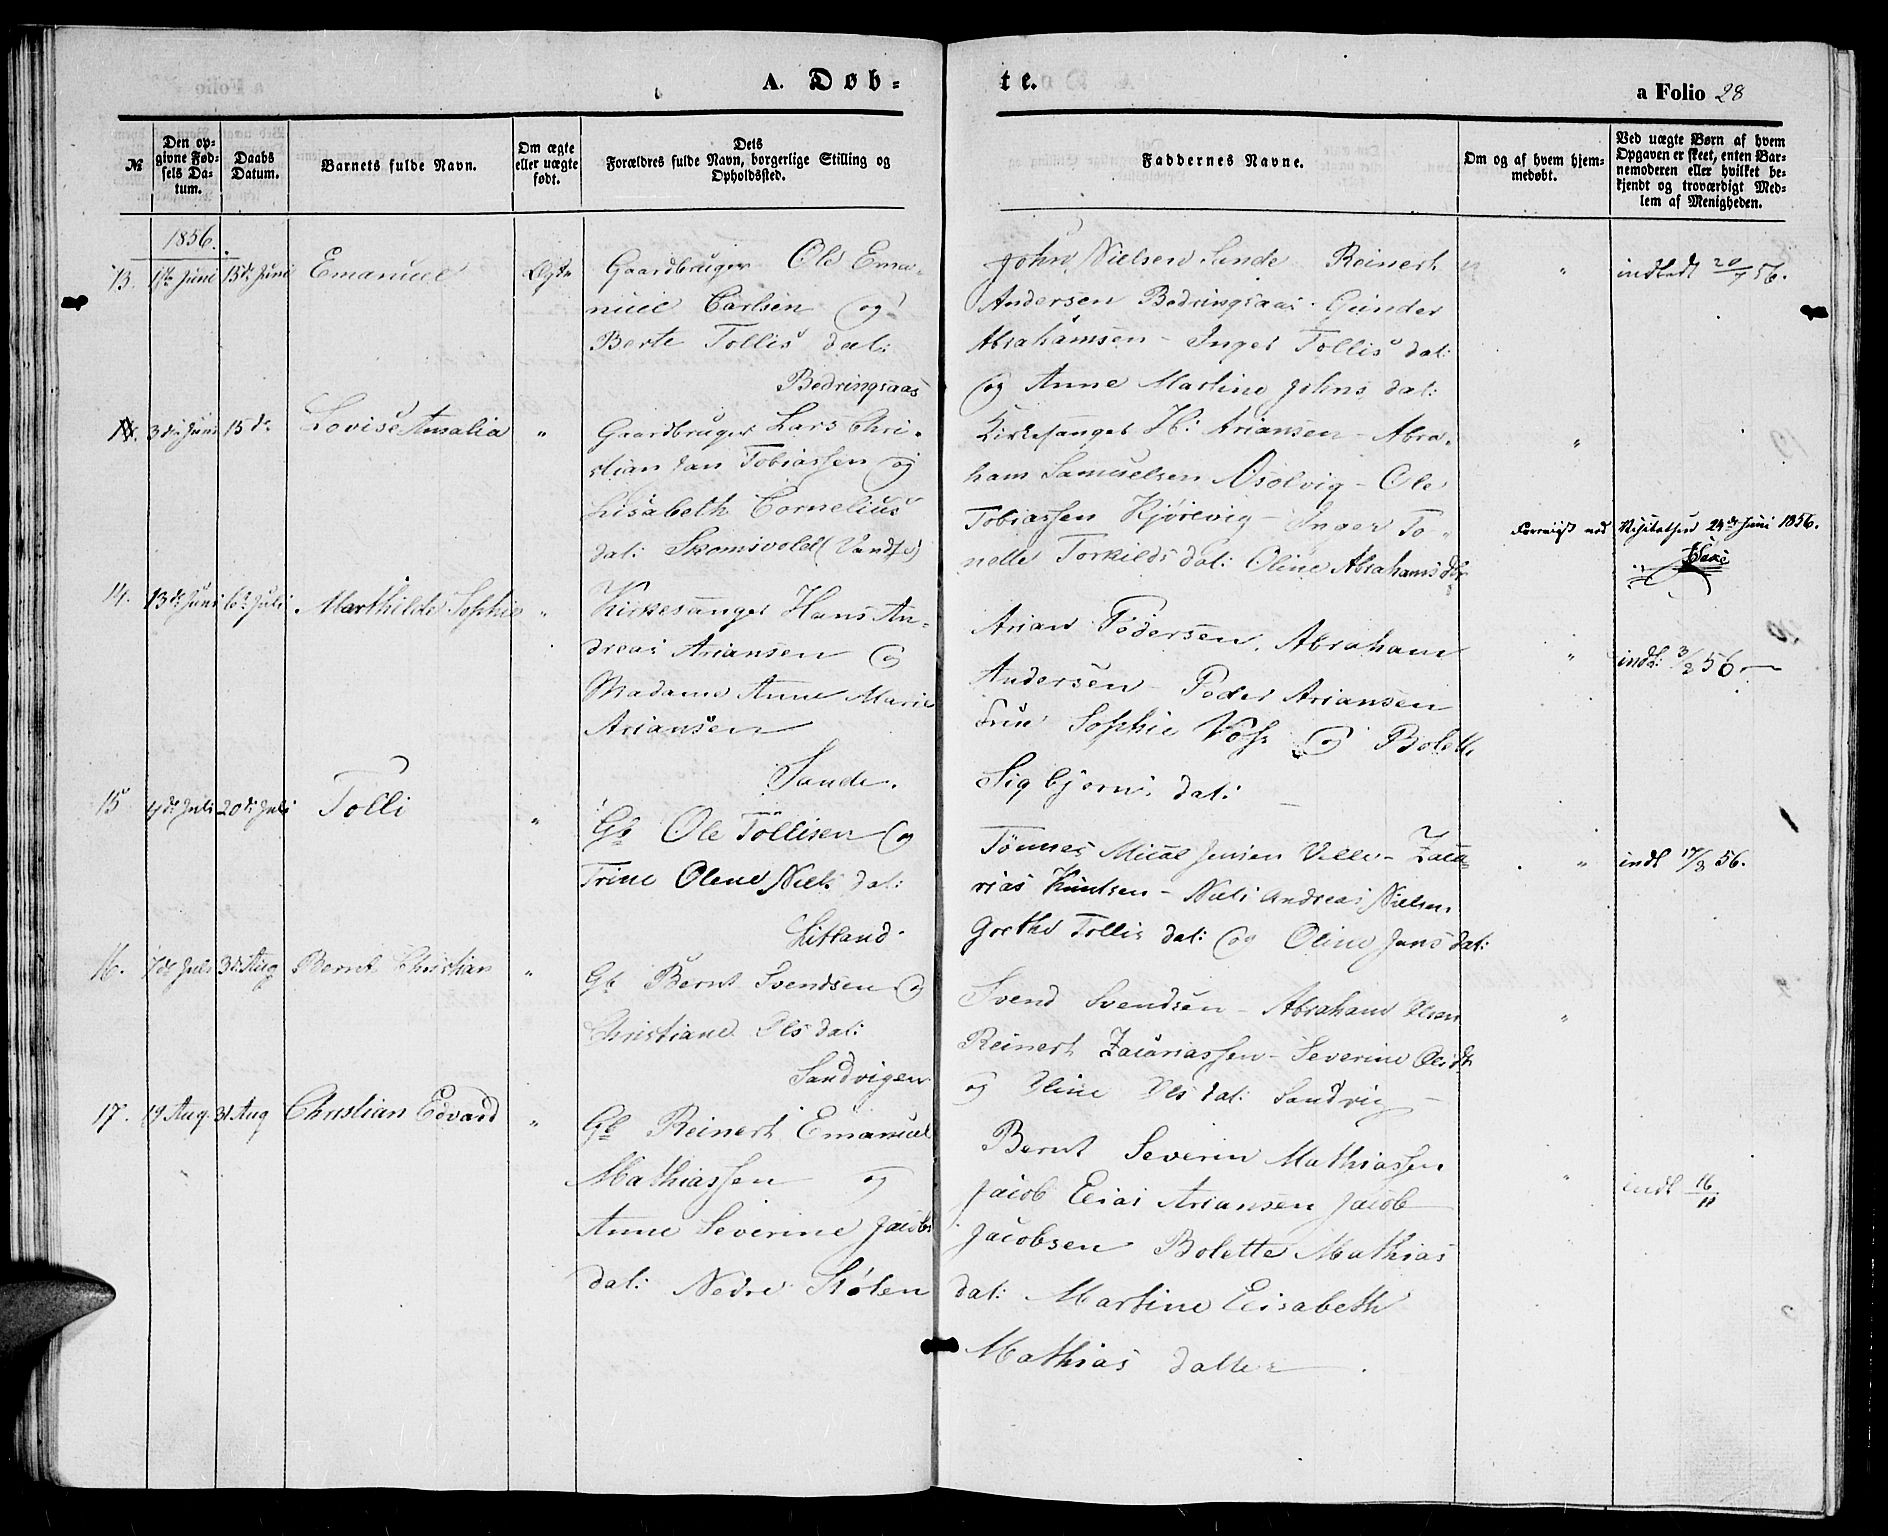 A. Døb-
te.
a Folio 28
№
Den op-
givne Fød-
sels Da-
tum.
Daabs
Datum.
Barnets fulde Navn.
Om ægte
eller uægte
født.
Dets
Forældres fulde Navn, borgerlige Stilling og
Opholdssted.
Faddernes Navne.
Om og af hvem hjem-
medøbt.
Ved uægte Børn af hvem
Opgaven er skeet, enten Bar-
nemoderen eller hvilket be-
kjendt og troværdigt Med-
lem af Menigheden.
1856.
13. 1ste Juni 15de Juni Emanuel Ægte
Gaardbruger Ole Ema-
nuel Carlsen og
Berte Tollis dat:
Bedringsaas
John Nielsen Sande Reinert
Andersen Bedringsaas - Gunder
Abrahamsen - Inger Tollis dat:
og Anne Martine Johns dat:
" indledt 20/7 56.
3de Juni 15de Lovise Amalia "
Gaardbruger Lars Chri-
stian Jan Tobiassen og
Lisabeth Cornelius
dat: Skomsvold
Kirkesanger H: Ariansen - Abra-
ham Samuelsen Osolvig - Ole
Tobiassen Kjørevig - Inger To-
nelle Torkilds dat: Oline Abrahams dtr
"
Visitatsen 24de Juni 1856.
14. 13de Juni 6te Juli Marthilde Sophie "
Kirkesanger Hans An-
dreas Ariansen og
Madame Anne Marie
Ariansen
Sande.
Arian Pedersen, Abraham
Andersen - Peder Ariansen
Frue Sophie Voss og Bolette
Sigbjørns dat:
" indl: 3/8 56
15 4de Juli 20de Juli Tolli "
Gb Ole Tollisen og
Trine Olene Niels dat:
Litland
Tønnes Mical Jensen Velle - Zaca
rias Knutsen - Niels Andreas Nielsen
Grethe Tollis dat: og Oline Jens dat:
" indl 17/8 56.
16. 7de Juli 3de Aug Bernt Christian "
Gb Bernt Svendsen og
Christiane Ols dat:
Sandvigen
Svend Svendsen - Abraham Olsen
Reinert Zacariassen - Severine Ols dtr
og Oline Ols dat: Sandvig
"
17. 19 Aug. 31 Aug Christian Edvard "
Gb Reinert Emanuel
Mathiassen og
Anne Severine Jacobs
dat: Nedre Støten
Bernt Severin Mathiassen
Jacob Elias Ariansen Jacob
Jacobsen Bolette Mathias
dat: Martine Elisabeth
Mathias datter
" indl 16/11